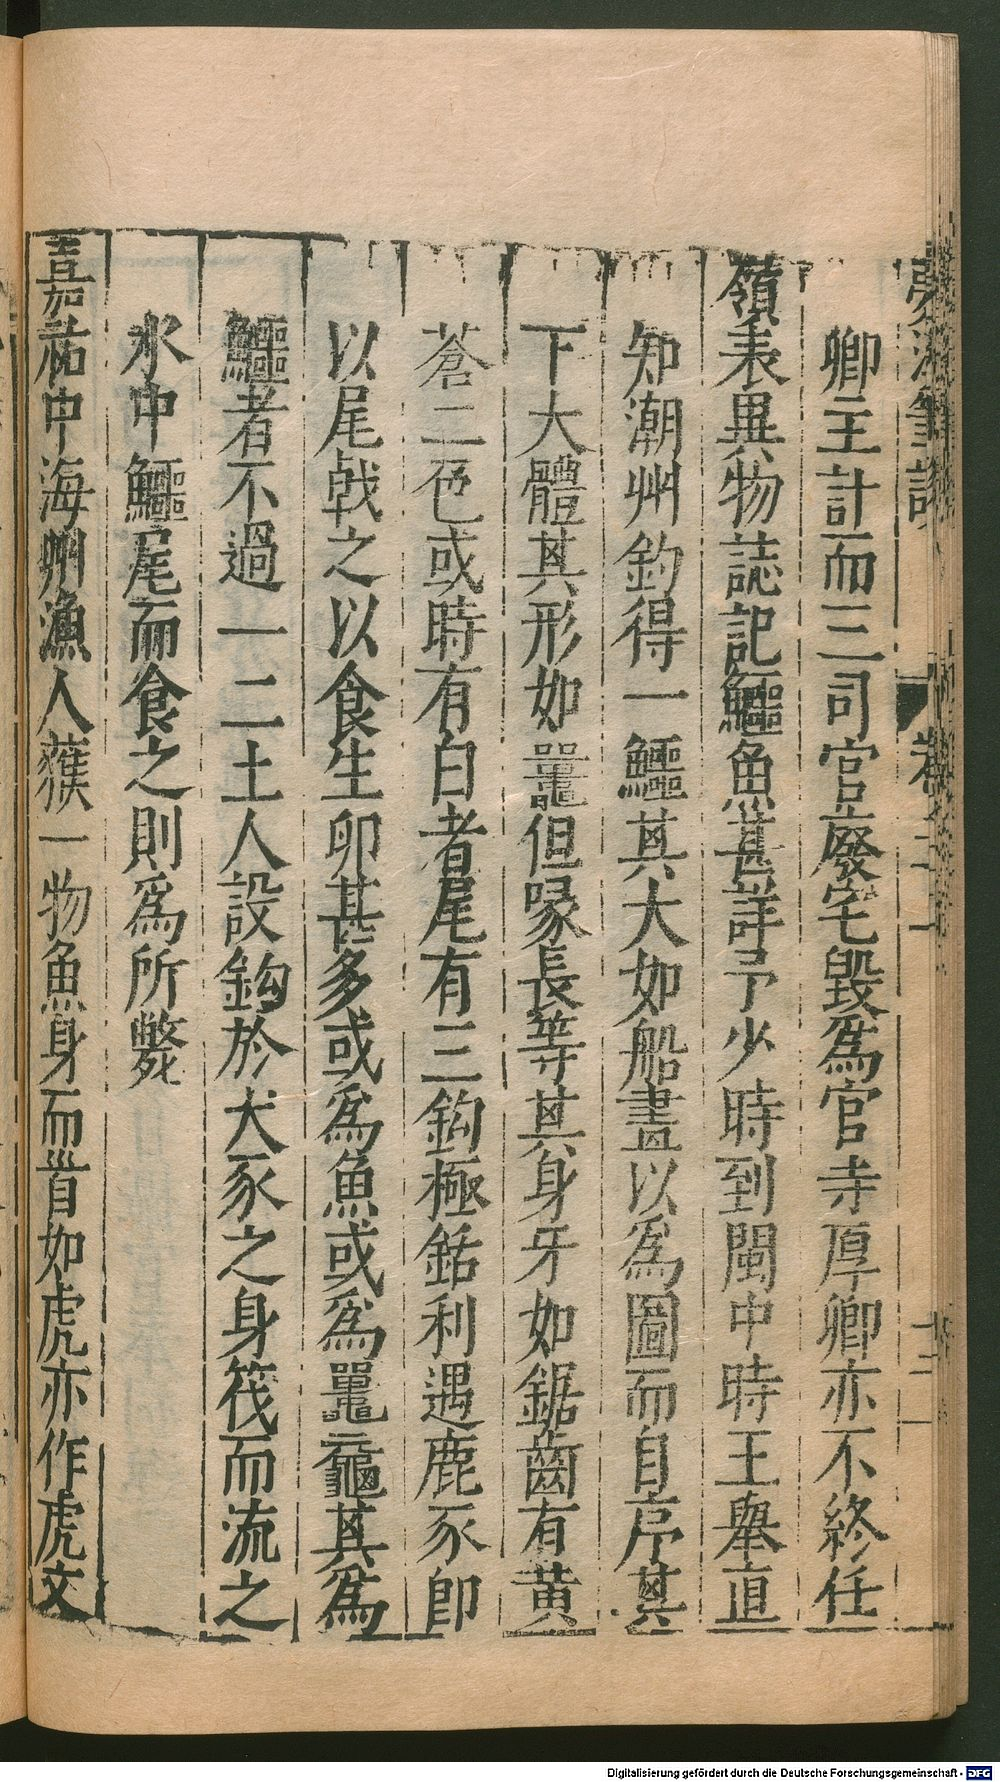 夢溪筆談 卷二十一 十二
卿王計而三司官廢宅毀爲官寺厚卿亦不終任
嶺表異物誌記鱷魚甚詳予少時到閩中時王舉直
知潮州釣得一鱷其大如船畫以爲圖而自序其
下大體其形如鼉但喙長等其身牙如鋸齒有黃
蒼二色或時有白者尾有三鈎極銛利遇鹿豕卽
以尾戟之以食生卵甚多或爲魚或爲鼉黿其爲
鱷者不過一二土人設鈎於犬豕之身筏而流之
水中鱷尾而食之則爲所斃
嘉祐中海州漁人獲一物魚身而首如虎亦作虎文
Digitalisierung gefördert durch die Deutsche Forschungsgemeinschaft - DFG